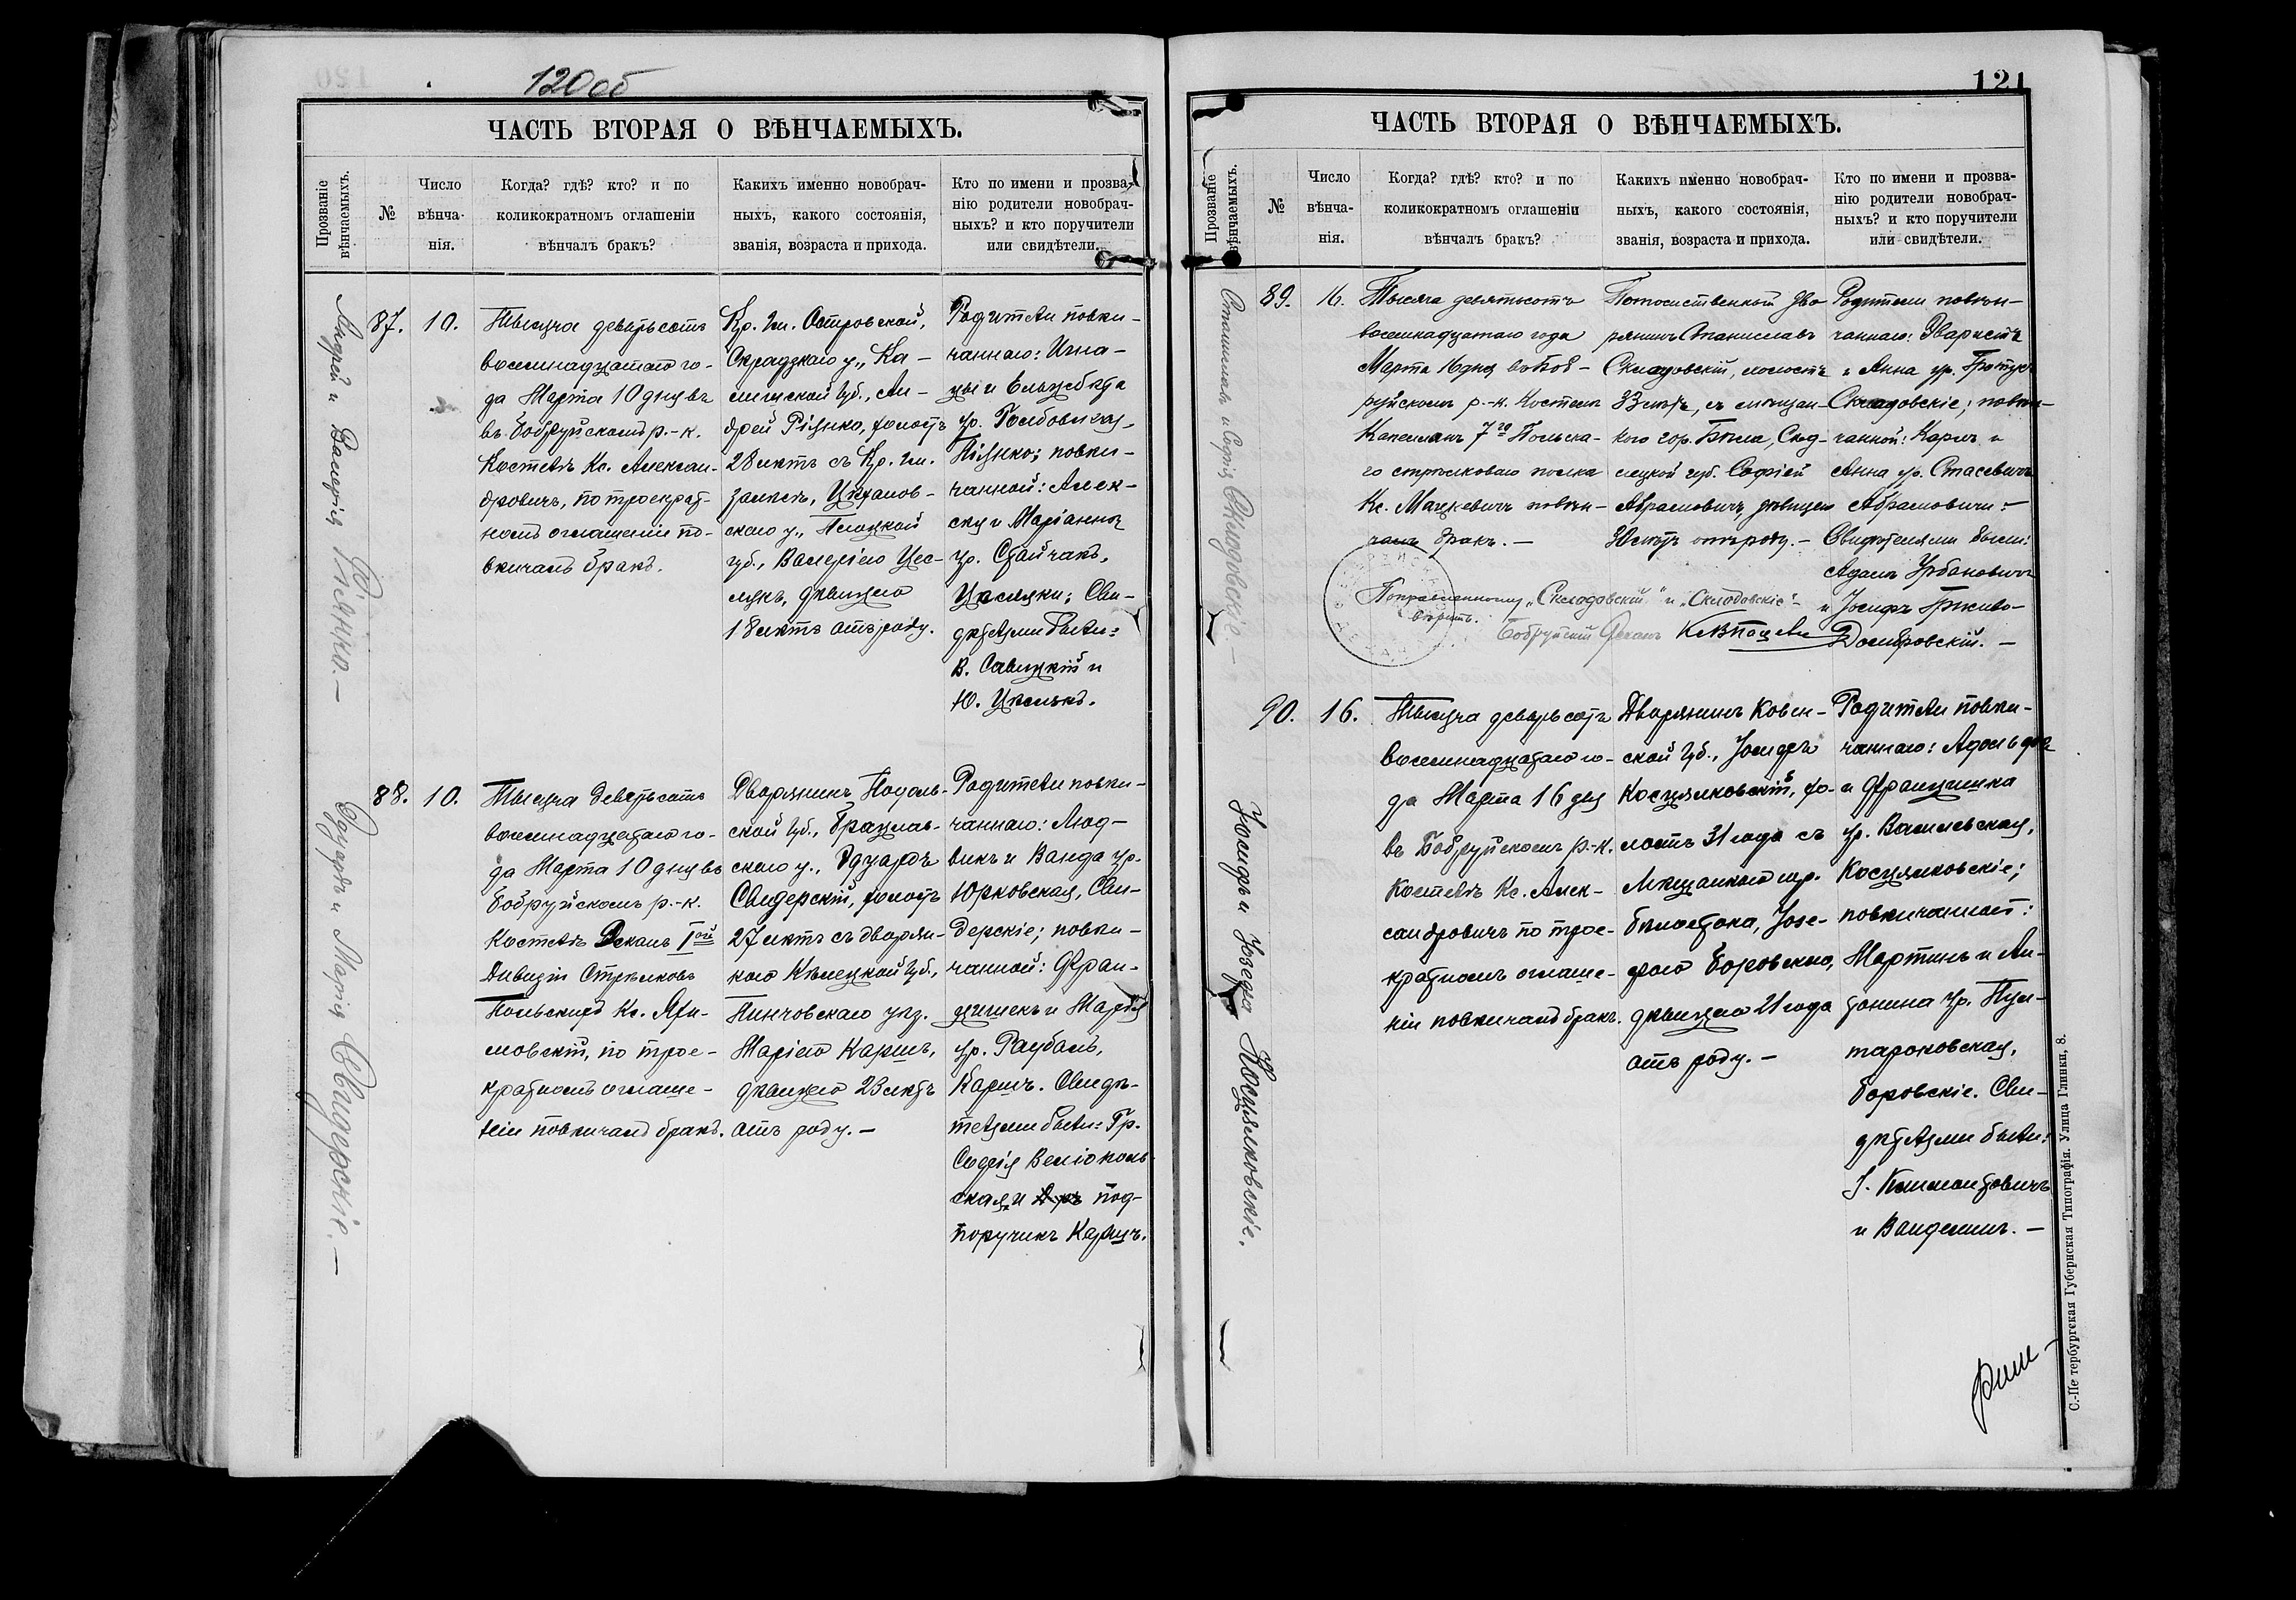 120об
ЧАСТЬ ВТОРАЯ О ВѢНЧАЕМЫХЪ.
Прозваніе
вѣнчаемыхъ.
№
Число
вѣнча-
нія.
Когда? гдѣ? кто? и по
коликократномъ оглашеніи
вѣнчалъ бракъ?
Какихъ именно новобрач-
ныхъ, какого состоянія,
званія, возраста и прихода.
Кто по имени и прозва-
нію родители новобрач-
ныхъ? и кто поручители
или свидѣтели.
Андрей и Валерія
87.
10.
Тысяча девятьсотъ
восемнадцатаго го-
да Марта 10 дня въ
въ Бобруйскомъ р.-к.
Костелѣ Кс. Алексан-
дровичъ, по троекрат-
номъ оглашеніи по-
вѣнчалъ бракъ.
Кр. гм. Островской,
Серадзкаго у., Ка-
лишской губ., Ан-
дрей холостъ
28 лѣтъ съ Кр. гм.
Цѣханов-
скаго у., Плоцкой
губ., Валеріею Цес-
дѣвицею
18 лѣтъ отъ роду.
Родители повѣн-
чаннаго: Игна-
цы и Ельжбета
ур.
повѣн-
чанной: Алек-
и Маріанна
ур. Стайчакъ,
Сви-
дѣтели были:
В. Савицкій и
Ю.
Эдуардъ и Марія Свидерскіе. —
88.
10.
Тысяча девятьсотъ
восемнадцатаго го-
да Марта 10 дня въ
Бобруйскомъ р.-к.
Костелѣ Деканъ Iой
Дивизіи Стрѣлковъ
Польскихъ Кс.
по трое-
кратномъ оглаше-
ніи повѣнчалъ бракъ.
Дворянинъ Подоль-
ской губ., Брацлав-
скаго у., Эдуардъ
Свидерскій, холостъ
27 лѣтъ съ дворян-
кою Кѣлецкой губ.,
Пинчовскаго уѣз.
Маріею Каршъ,
дѣвицею 23 лѣтъ
отъ роду. —
Родители повѣн-
чаннаго: Люд-
викъ и Ванда ур.
Юрковская, Сви-
дерскіе; повѣн-
чанной: Фран-
цишекъ и Марія
ур.
Каршъ. Свидѣ-
тели были: Гр.
Софія
ская и под-
поручикъ Каршъ.
121
ЧАСТЬ ВТОРАЯ О ВѢНЧАЕМЫХЪ.
Прозваніе
вѣнчаемыхъ.
№
Число
вѣнча-
нія.
Когда? гдѣ? кто? и по
коликократномъ оглашеніи
вѣнчалъ бракъ?
Какихъ именно новобрач-
ныхъ, какого состоянія,
званія, возраста и прихода.
Кто по имени и прозва-
нію родители новобрач-
ныхъ? и кто поручители
или свидѣтели.
Станиславъ и Софія Склодовскіе. —
89.
16.
Тысяча девятьсотъ
восемнадцатаго года
Марта 16 дня въ Боб-
руйскомъ р.-к. Костелѣ
Капелланъ 7го Польска-
го стрѣлковаго полка
Кс. Мацкевичъ повѣн-
чалъ бракъ. —
Потомственный дво
рянинъ Станиславъ
Склодовскій, холостъ
33 лѣтъ, съ мѣщан-
кою гор. Бѣла, Сѣд-
лецкой губ. Софіей
Абрамовичъ, дѣвицею
лѣтъ отъ роду. —
Родители повѣн-
чаннаго: Эваристъ
и Анна ур.
Склодовскіе; повѣн-
чанной: Карлъ и
Анна ур. Стасевичъ
Абрамовичи. —
Свидѣтелями были:
Адамъ Урбановичъ
и Іосифъ Грживо-
Домбровскій. —
Поправленному „Склодовскій“ и „Склодовскіе“ —
вѣрить.
Бобруйскій Деканъ
Іосифъ и Іозефа Косцялковскіе.
90.
16.
Тысяча девятьсотъ
восемнадцатаго го-
да Марта 16 дня
въ Бобруйскомъ р.-к.
Костелѣ Кс. Алек-
сандровичъ по трое-
кратномъ оглаше-
ніи повѣнчалъ бракъ.
Дворянинъ Ковен-
ской губ., Іосифъ
Косцялковскій, хо-
лостъ 31 года съ
Мѣщанкою гор.
Бѣлостока, Іозе-
фою Боровскою,
дѣвицею 21 года
отъ роду. —
Родители повѣн-
чаннаго: Адольфъ
и Францишка
ур. Василевская,
Косцялковскіе;
повѣнчанной:
Мартинъ и Ан-
тонина ур.
Боровскіе. Сви-
дѣтели были:
и
С.-Петербургская Губернская Типографія. Улица Глинки, 8.